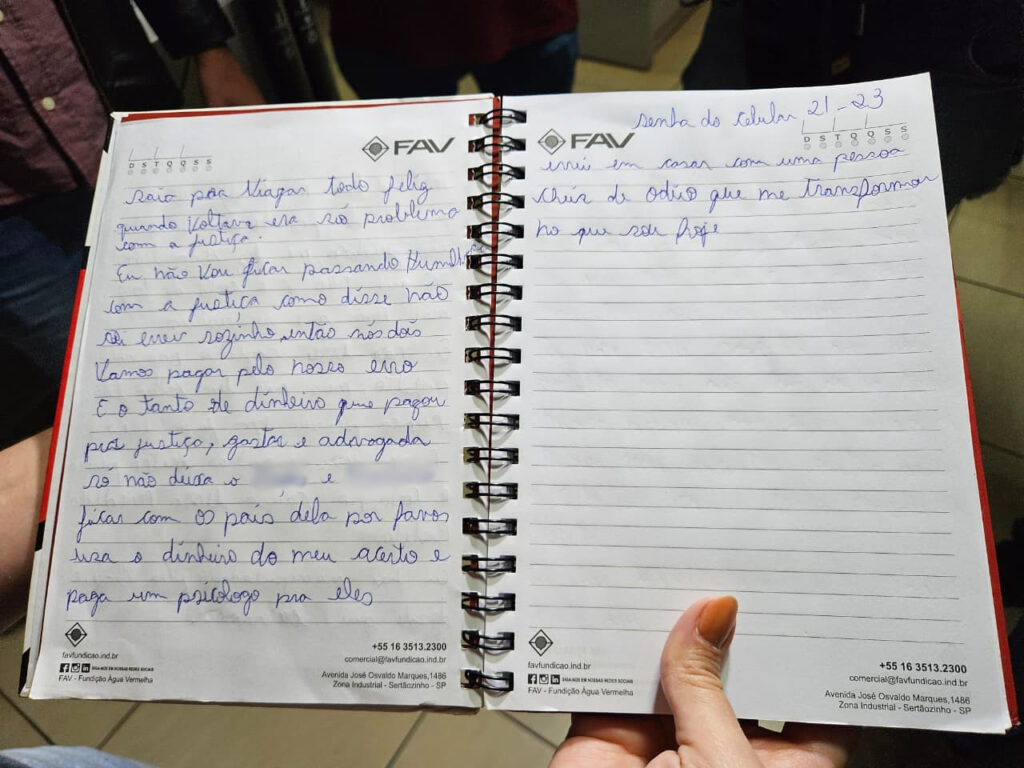 FAV
D S T Q Q S S
saia pra Viagar todo feliz
quando Voltava era só problema
com a justiça.
Eu não Vou ficar passando
com a justiça como disse não
errei sozinho, então nós dois
Vamos pagar pelo nosso erro
E o tanto de dinheiro que pagou
pra justiça, gastar e advogada
só não deixa o e
ficar com os pais dela por favor
usa o dinheiro do meu acerto e
paga um psicologo pra eles
favfundicao.ind.br
SIGA-NOS EM NOSSAS REDES SOCIAIS
FAV - Fundição Água Vermelha
+55 16 3513.2300
comercial@favfundicao.ind.br
Avenida José Osvaldo Marques,1486
Zona Industrial - Sertãozinho - SP
senha do celular 21-23
FAV
D S T Q Q S S
errei em casar com uma pessoa
cheia de odio que me transformou
no que sou hoje
favfundicao.ind.br
SIGA-NOS EM NOSSAS REDES SOCIAIS
FAV - Fundição Água Vermelha
+55 16 3513.2300
comercial@favfundicao.ind.br
Avenida José Osvaldo Marques,1486
Zona Industrial - Sertãozinho - SP